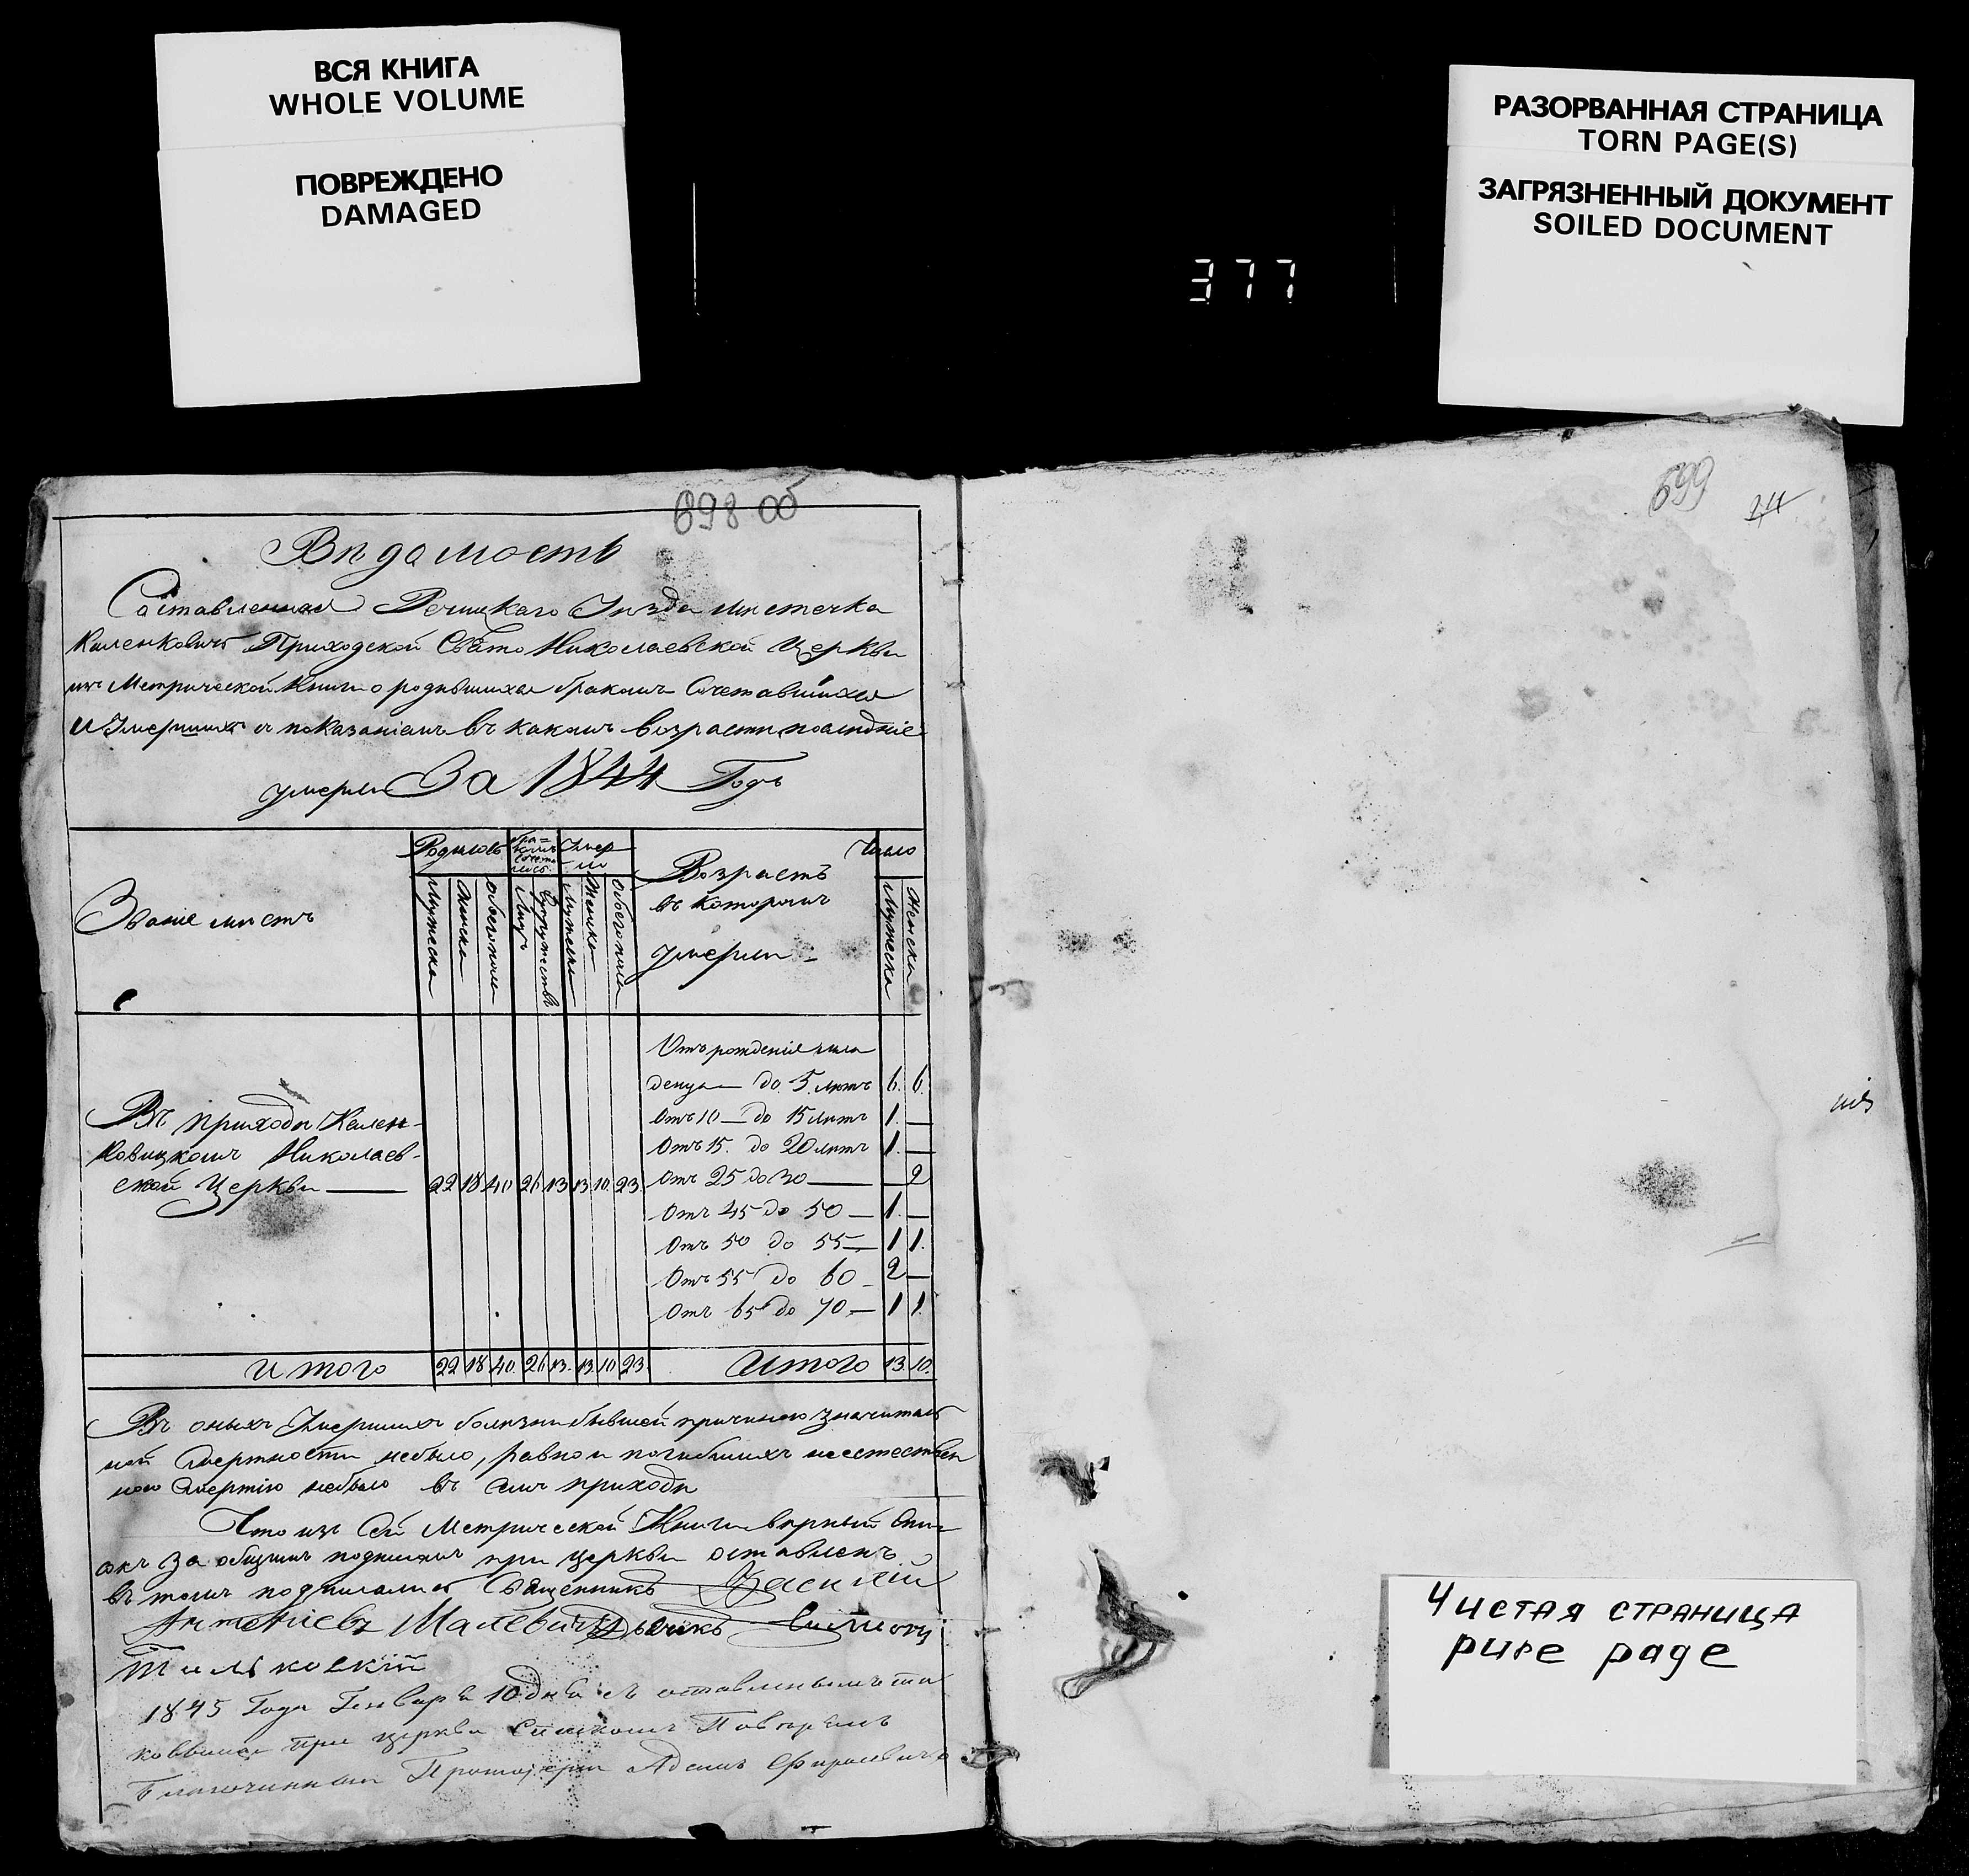 ВСЯ КНИГА
WHOLE VOLUME
ПОВРЕЖДЕНО
DAMAGED
РАЗОРВАННАЯ СТРАНИЦА
TORN PAGE(S)
ЗАГРЯЗНЕННЫЙ ДОКУМЕНТ
SOILED DOCUMENT
377
698 об
Вѣдомость
Составленная Речицкаго Уѣзда мѣстечка
Каленковичъ Приходской Свято Николаевской Церкви
изъ Метрической Книги о родившихся бракомъ Сочетавшихся
и Умершихъ съ показаніемъ въ какомъ возрастѣ послѣдніе
умерли За 1844 Годъ
Званіе мѣстъ
Родилось
бра=
комъ
сочета
лось
Умер
ло
Возрастъ
въ которомъ
умерли
Число
Мужеска
Женска
Обоего пола
Лицъ
Супружествъ
Мужеска
Женска
Обоего пола
Мужеска
Женска
Отъ рожденія мла
денца до 5. лѣтъ 6. 6.
Отъ 10 — до 15 лѣтъ 1. —
Отъ 15. до 20 лѣтъ 1. —
Въ приходѣ Кален-
ковицкомъ Николаев-
ской Церкви — 22 18 40 26 13 13 10 23
Отъ 25 до 30 — — 2
Отъ 45 до 50 — 1. —
Отъ 50 до 55 — 1 1.
Отъ 55 до 60 — 2 —
Отъ 65 до 70 — 1 1.
Итого 22 18 40. 26 13. 13. 10 23. Итого 13. 10.
Въ оныхъ Умершихъ болѣзни бывшей причиною значитель
ной Смертности небыло, равно и погибшихъ неестествен
ною Смертію небыло въ семъ приходѣ
Что изъ Сей Метрической Книги вѣрный Спи=
сокъ за общимъ подписомъ при церкви оставленъ
въ томъ подписались Священникъ Василій
Антоніевъ Малевичъ Дьячекъ Симеонъ
1845 Года Генваря 10 дня съ оставленнымъ та
ковымже при церкви Спискомъ Повѣрялъ
Благочинный Протоіерей Адамъ
699
24
Чистая страница
pure page